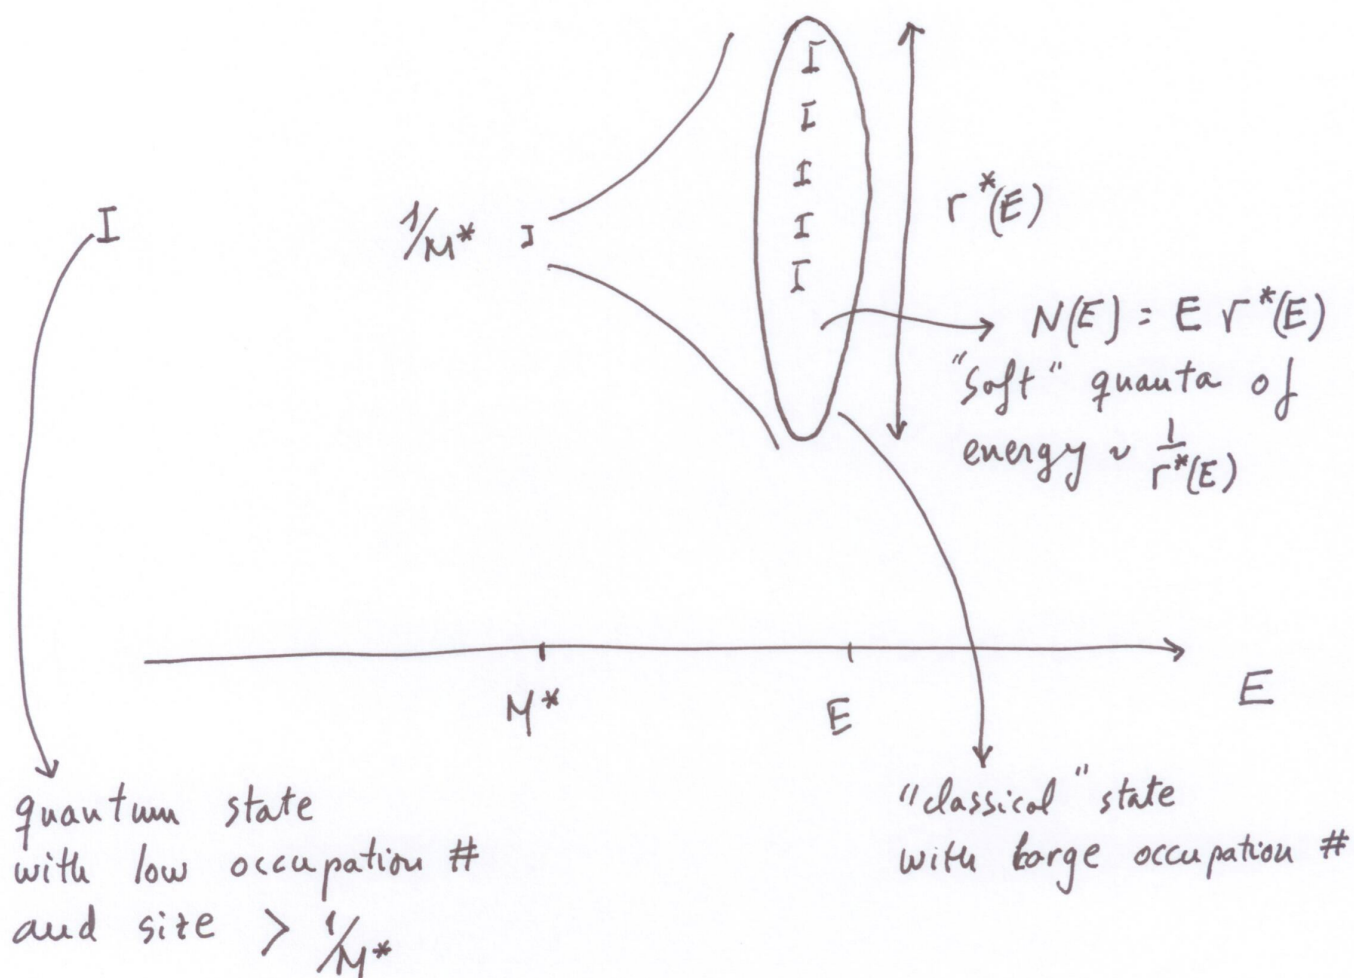 I
I
I
I
I
I
1/M* I
r*(E)
N(E) = E r*(E)
"Soft" quanta of
energy ~ 1/r*(E)
M*
E
E
quantum state
with low occupation #
and size > 1/M*
"classical" state
with large occupation #